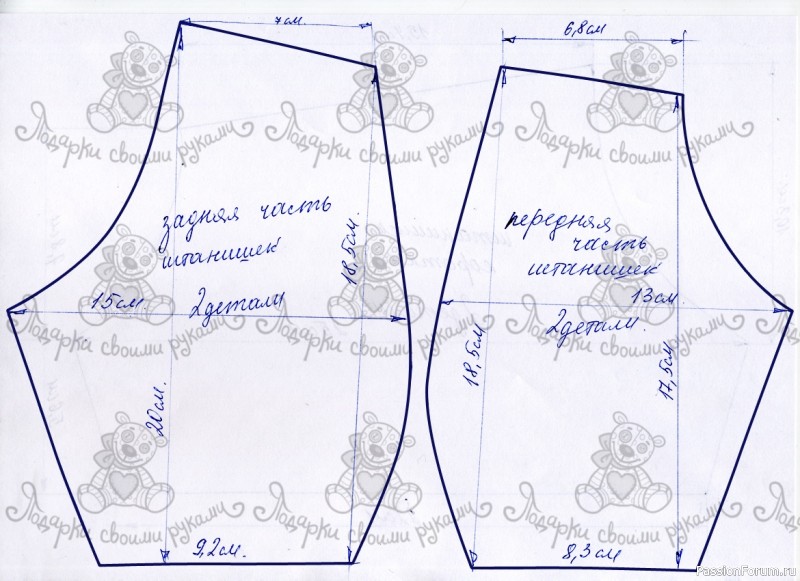 7 см.
6,8 см
задняя часть
штанишек
2 детали
15 см.
18,5 см.
20 см.
9,2 см.
передняя
часть
штанишек
13 см.
2 детали.
18,5 см
17,5 см.
8,3 см
Подарки своими руками
Подарки своими руками
Подарки своими руками
Подарки своими руками
Подарки своими руками
Подарки своими руками
Подарки своими руками
Подарки своими руками
Подарки своими руками
PassionForum.ru